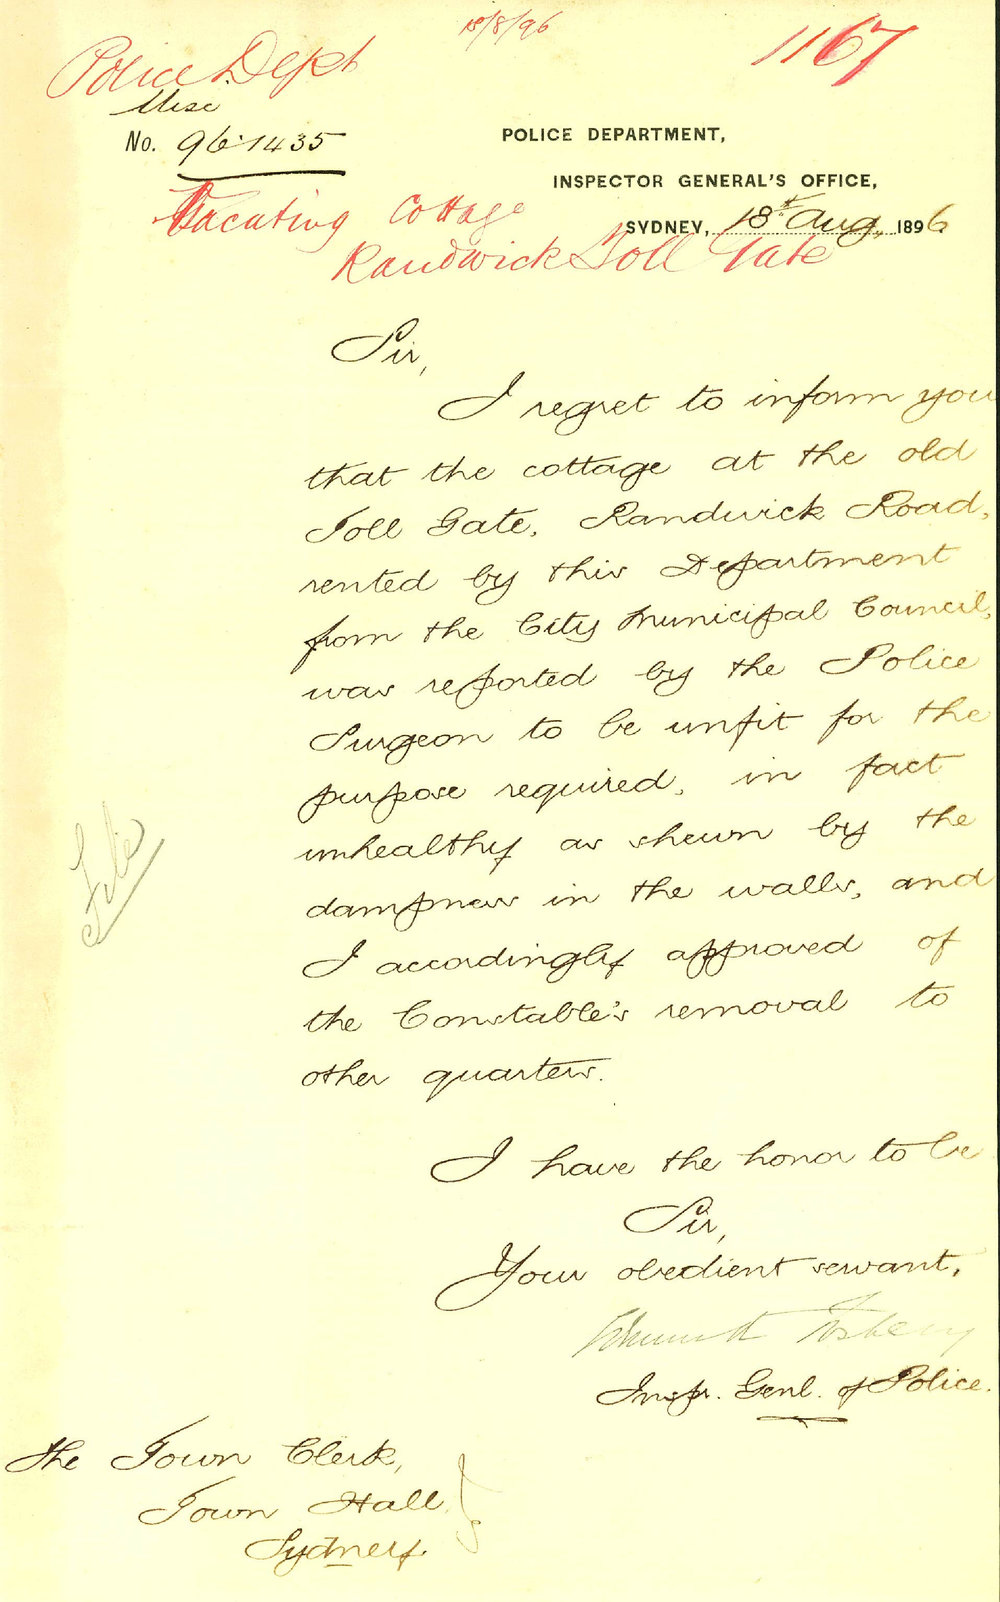 18/8/96
1167
Police Dept
Misc
No. 96.1435
POLICE DEPARTMENT,
INSPECTOR GENERAL'S OFFICE,
Vacating Cottage
SYDNEY, 18th Aug. 1896.
Randwick Toll Gate
Sir,
I regret to inform you
that the cottage at the old
Toll Gate, Randwick Road,
rented by this Department
from the City Municipal Council,
was reported by the Police
Surgeon to be unfit for the
purpose required, in fact
unhealthy as shewn by the
dampness in the walls, and
I accordingly approved of
the Constable's removal to
other quarters.
File
I have the honor to be
Sir,
Your obedient servant,
Edmund Fosbery
Inspr. Genl. of Police.
The Town Clerk,
Town Hall,
Sydney.